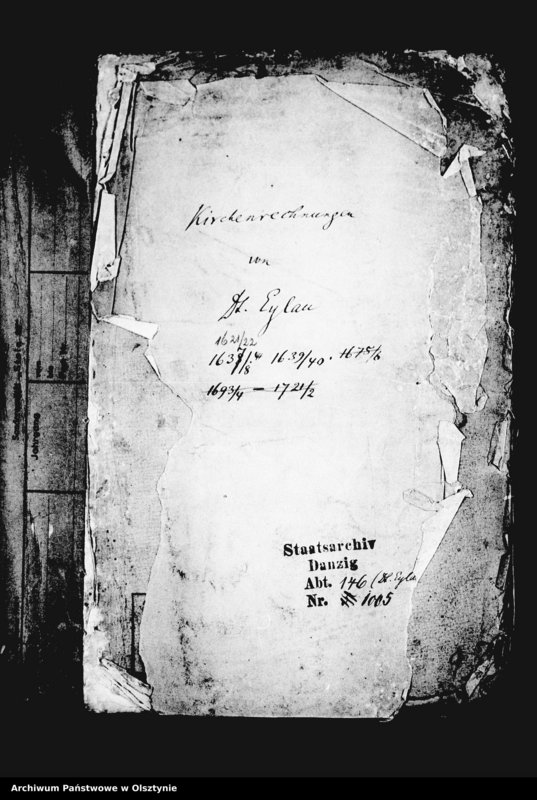 Kirchenrechnungen
von
Dt. Eylau
1621/22
1637/8 1639/40. 1675/6
1693/4 – 1721/2
Staatsarchiv
Danzig
Abt. 146 (Dt. Eylau
Nr. 1005
Jahrgang
Archiwum Państwowe w Olsztynie